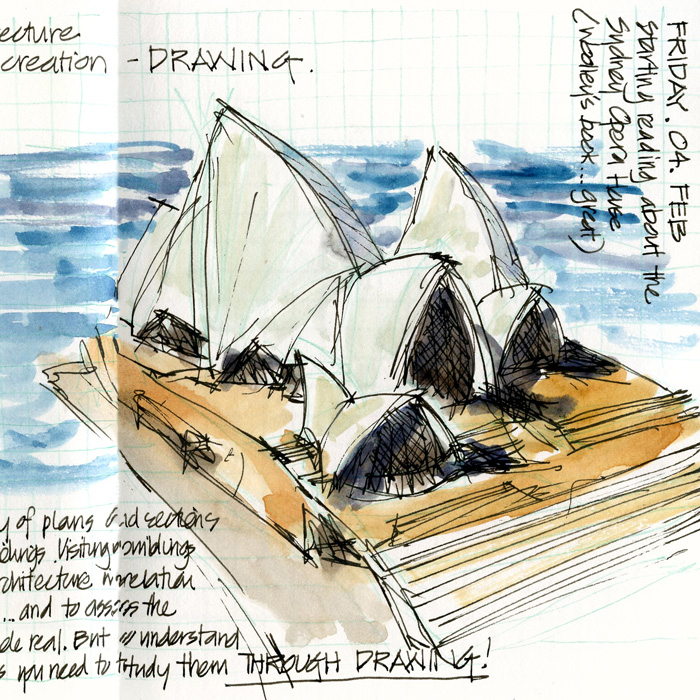 ecture
creation - DRAWING.
FRIDAY. 04. FEB
starting reading about the
Sydney Opera House
(Woolley's book...great)
y of plans and sections
ldings. Visiting buildings
rchitecture in relation
... and to assess the
de real. But to understand
s you need to study them THROUGH DRAWING!